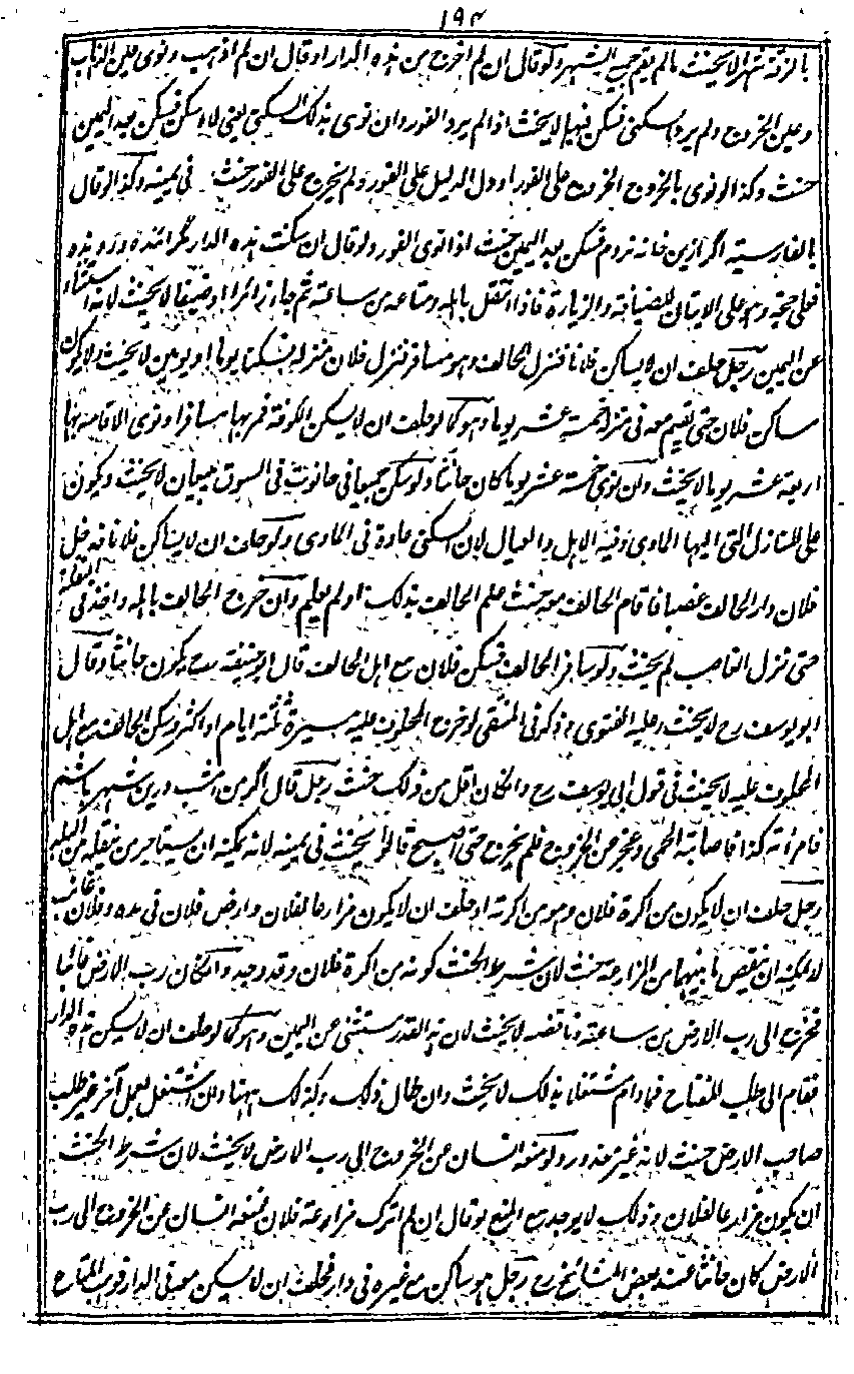 ١٩٣
بالرقة شهرا لا يحنث ما لم يقم جميع الشهر ولو قال ان لم اخرج من هذه الدار او قال ان لم اذهب ونوى عين الذهاب
وعين الخروج ولم يرد السكنى فسكن فيها لا يحنث اذا لم يرد الفور وان نوى بذلك السكنى يعنى لا يسكن فسكن بعد اليمين
حنث وكذا لو نوى بالخروج الخروج على الفور او دل الدليل على الفور ولم يخرج على الفور حنث فى يمينه وكذا لو قال
بالفارسية اگر ازين خانه نروم فسكن بعد اليمين حنث اذا نوى الفور ولو قال ان سكنت هذه الدار
فعلى حجة وهو على الاتيان للضيافة والزيارة فاذا انتقل باهله ومتاعه من ساعته ثم جاء زائرا او ضيفا لا يحنث لانه استثناه
عن اليمين رجل حلف ان لا يساكن فلانا فنزل الحالف وهو مسافر منزل فلان فسكنا يوما او يومين لا يحنث ولا يكون
ساكن فلان حتى يقيم معه فى منزله خمسة عشر يوما وهو كما لو حلف ان لا يسكن الكوفة فمر بها مسافرا ونوى الاقامة بها
اربعة عشر يوما لا يحنث وان نوى خمسة عشر يوما كان حانثا ولو سكن جميعا فى حانوت فى السوق يبيعان لا يحنث ويكون
على المنازل التى اليها الماوى وفيه الاهل والعيال لان السكنى عادة فى الماوى ولو حلف ان لا يساكن فلانا فدخل
فلان دار الحالف غصبا فاقام الحالف معه حنث علم الحالف بذلك او لم يعلم وان خرج الحالف باهله واخذ فى النقلة
حتى نزل الغاصب لم يحنث ولو سافر الحالف فسكن فلان مع اهل الحالف قال ابو حنيفة رح يكون حانثا وقال
ابو يوسف رح لا يحنث وعليه الفتوى وذكر فى المنتقى لو خرج المحلوف عليه مسيرة ثلثة ايام او اكثر وسكن الحالف مع اهل
المحلوف عليه لا يحنث فى قول ابى يوسف رح وان كان اقل من ذلك حنث رجل قال اگر من امشب درين شهر باشم
فامرأته كذا فاصابته الحمى وعجز عن الخروج فلم يخرج حتى اصبح قالوا يحنث فى يمينه لانه يمكنه ان يستاجر من ينقله من البلد
رجل حلف ان لا يكون من اكرة فلان وهو من اكرته او حلف ان لا يكون مزارعا لفلان وارض فلان فى يده وفلان غائب
لا يمكنه ان ينقض ما بينهما من المزارعة حنث لان شرط الحنث كونه من اكرة فلان وقد وجد وان كان رب الارض غائبا
فخرج الى رب الارض من ساعته وناقضه لا يحنث لان هذا القدر مستثنى عن اليمين وهو كما لو حلف ان لا يسكن هذه الدار
فقام الى طلب المفتاح فما دام مشتغلا بذلك لا يحنث وان طال ذلك وكذلك ههنا وان اشتغل بعمل آخر غير طلب
صاحب الارض حنث لانه غير معذور ولو منعه انسان عن الخروج الى رب الارض لا يحنث لان شرط الحنث
ان يكون مزارعا لفلان وذلك لا يوجد مع المنع لو قال ان لم اترك مزارعة فلان فمنعه انسان عن الخروج الى رب
الارض كان حانثا عند بعض المشائخ رح رجل هو ساكن مع غيره فى دار فحلف ان لا يسكن معه فى الدار فوهب المتاع